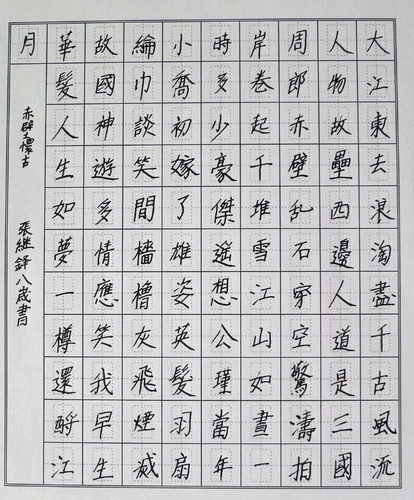 大江東去浪淘盡千古風流
人物故壘西邊人道是三國
周郎赤壁乱石穿空驚濤拍
岸卷起千堆雪江山如畫一
時多少豪傑遙想公瑾當年
小喬初嫁了雄姿英髮羽扇
綸巾談笑間檣櫓灰飛煙滅
故國神遊多情應笑我早生
華髮人生如夢一樽還酹江
月
赤壁懷古 張繼鋒八歲書